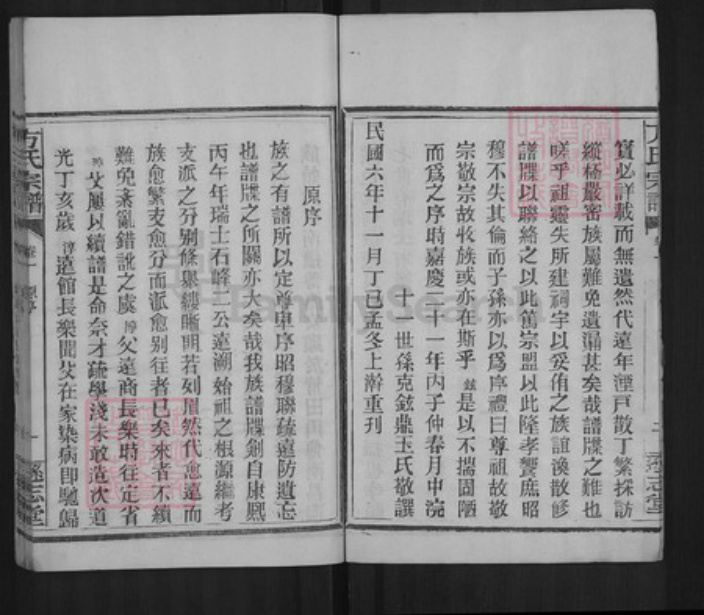 實必詳載而無遺然代遠年湮戶散丁繁採訪
縱極嚴密族屬難免遺漏甚矣哉譜牒之難也
嗟乎祖靈失所建祠宇以妥侑之族誼渙散修
譜牒以聯絡之以此篤宗盟以此隆孝饗庶昭
穆不失其倫而子孫亦以爲序禮曰尊祖故敬
宗敬宗故收族或亦在斯乎鉉是以不揣固陋
而爲之序時嘉慶二十一年丙子仲春月中浣
十一世孫克鉉鼎玉氏敬譔
民國六年十一月丁巳孟冬上澣重刊
方氏宗譜
遜志堂
原序
族之有譜所以定尊卑序昭穆聯疏遠防遺忘
也譜牒之所關亦大矣哉我族譜牒剏自康熙
丙午年瑞士石峰二公遠溯始祖之根源繼考
支派之分别條舉縷晰明若列眉然代愈遠而
族愈繁支愈分而派愈别往者已矣來者不續
難免紊亂錯訛之虞惇父遠商長樂時往定省
惇父屢以續譜是命奈才疏學淺未敢造次道
光丁亥歲惇遠館長樂聞父在家染病即馳歸
方氏宗譜
卷一
原序
一
遜志堂
FamilySearch